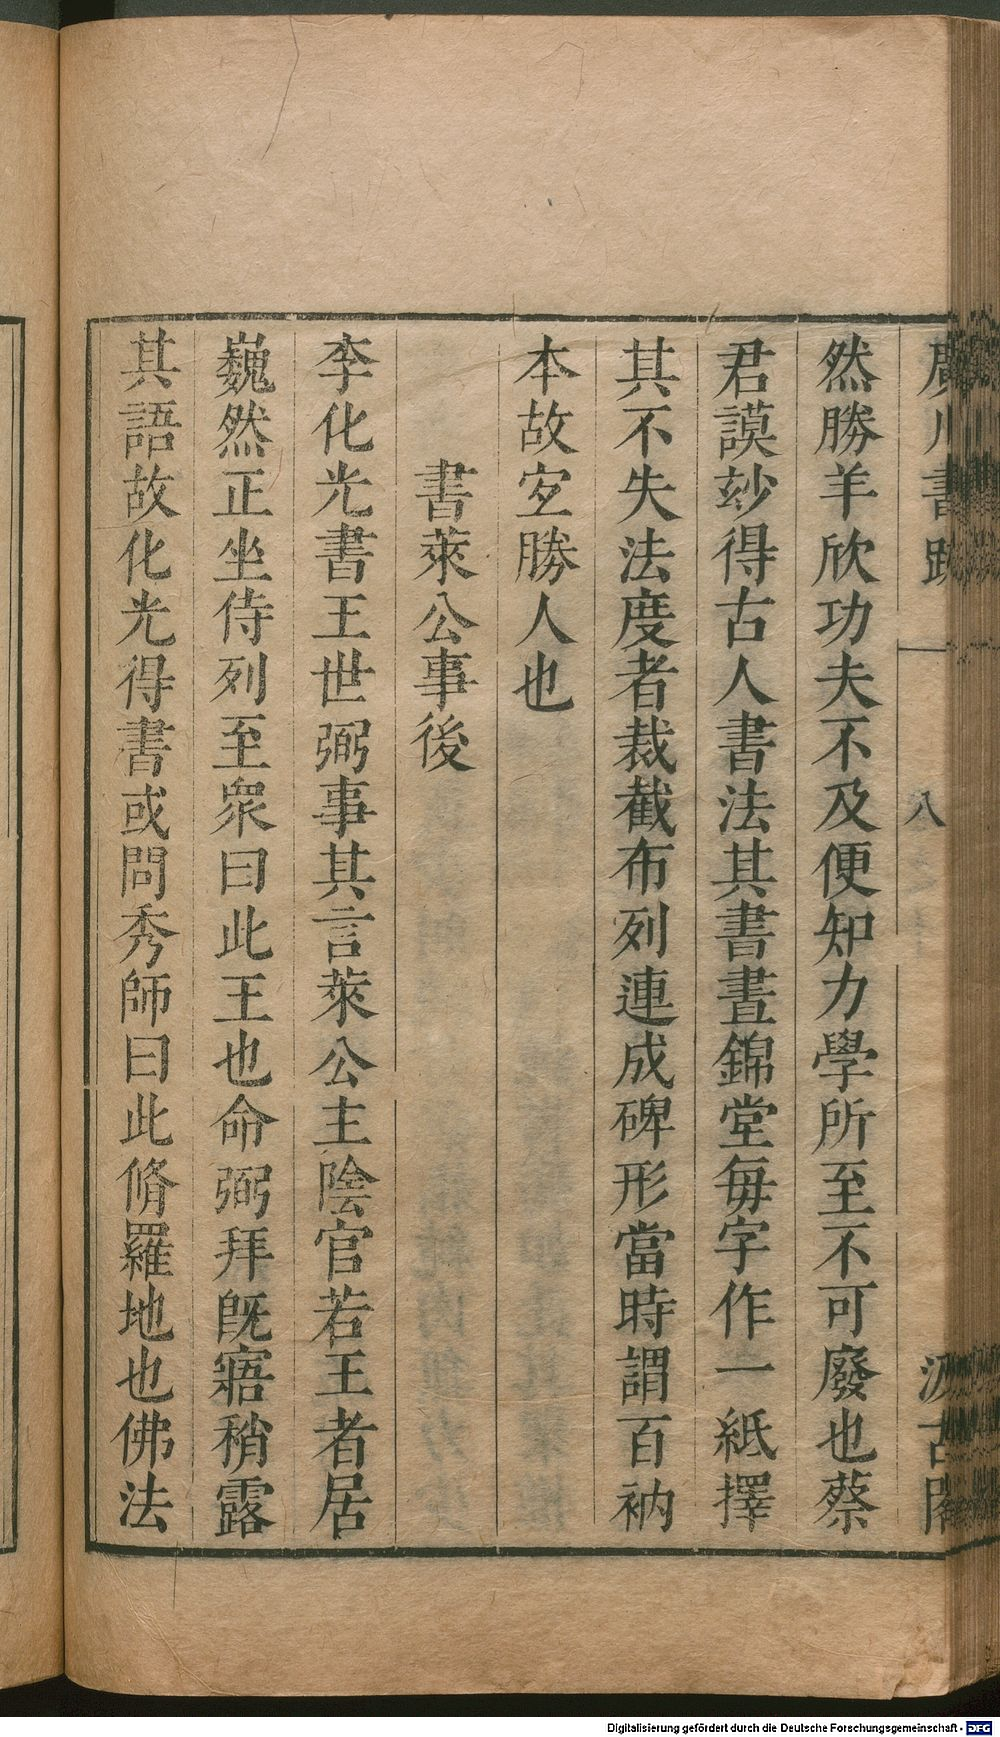 廣川書跋 八 汲古閣
然勝羊欣功夫不及便知力學所至不可廢也蔡
君謨玅得古人書法其書晝錦堂每字作一紙擇
其不失法度者裁截布列連成碑形當時謂百衲
本故宐勝人也
書萊公事後
李化光書王世弼事其言萊公主陰官若王者居
巍然正坐侍列至衆曰此王也命弼拜旣寤稍露
其語故化光得書或問秀師曰此脩羅地也佛法
Digitalisierung gefördert durch die Deutsche Forschungsgemeinschaft - DFG